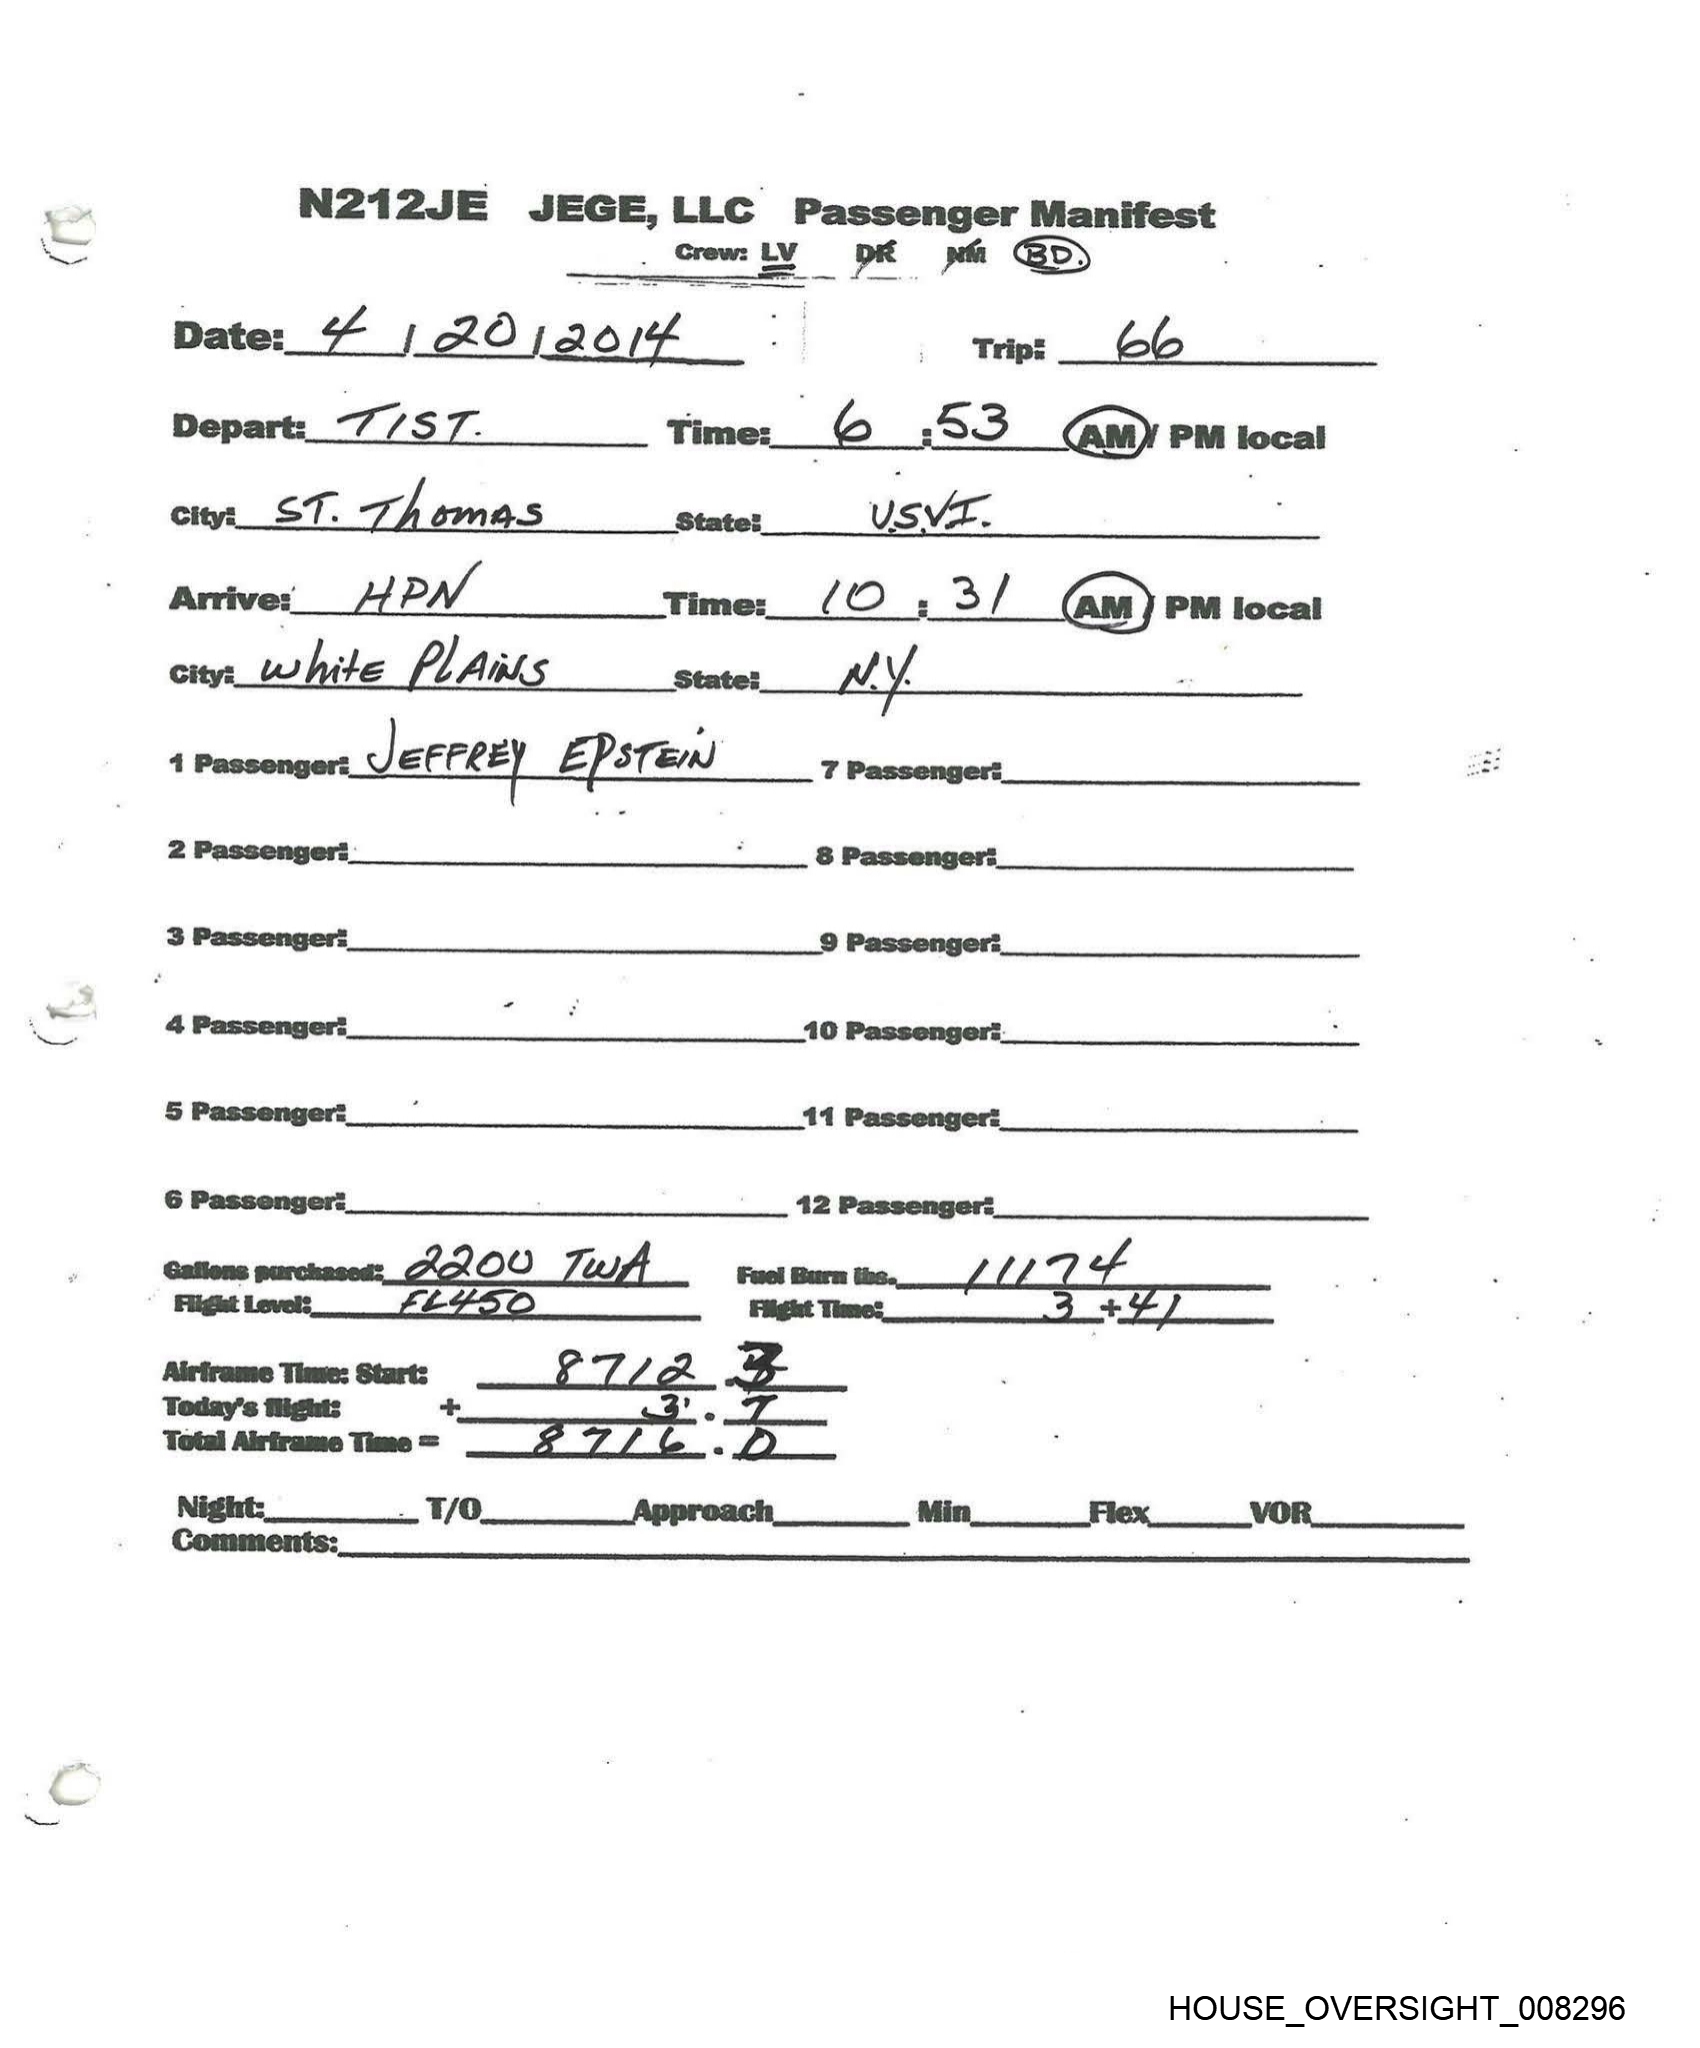 N212JE JEGE, LLC Passenger Manifest
Crew: LV DK NM BD.
Date: 4 / 20 / 2014 Trip: 66
Depart: TIST. Time: 6 : 53 AM / PM local
City: ST. Thomas State: U.S.V.I.
Arrive: HPN Time: 10 : 31 AM / PM local
City: White Plains State: N.Y.
1 Passenger: JEFFREY EPSTEIN 7 Passenger:
2 Passenger: 8 Passenger:
3 Passenger: 9 Passenger:
4 Passenger: 10 Passenger:
5 Passenger: 11 Passenger:
6 Passenger: 12 Passenger:
Gallons purchased: 2200 TWA Fuel Burn lbs. 11174
Flight Level: FL450 Flight Time: 3 + 41
Airframe Time: Start: 8712 .3
Today's flight: + 3 . 7
Total Airframe Time = 8716 . 0
Night: T/O Approach Min Flex VOR
Comments:
HOUSE_OVERSIGHT_008296